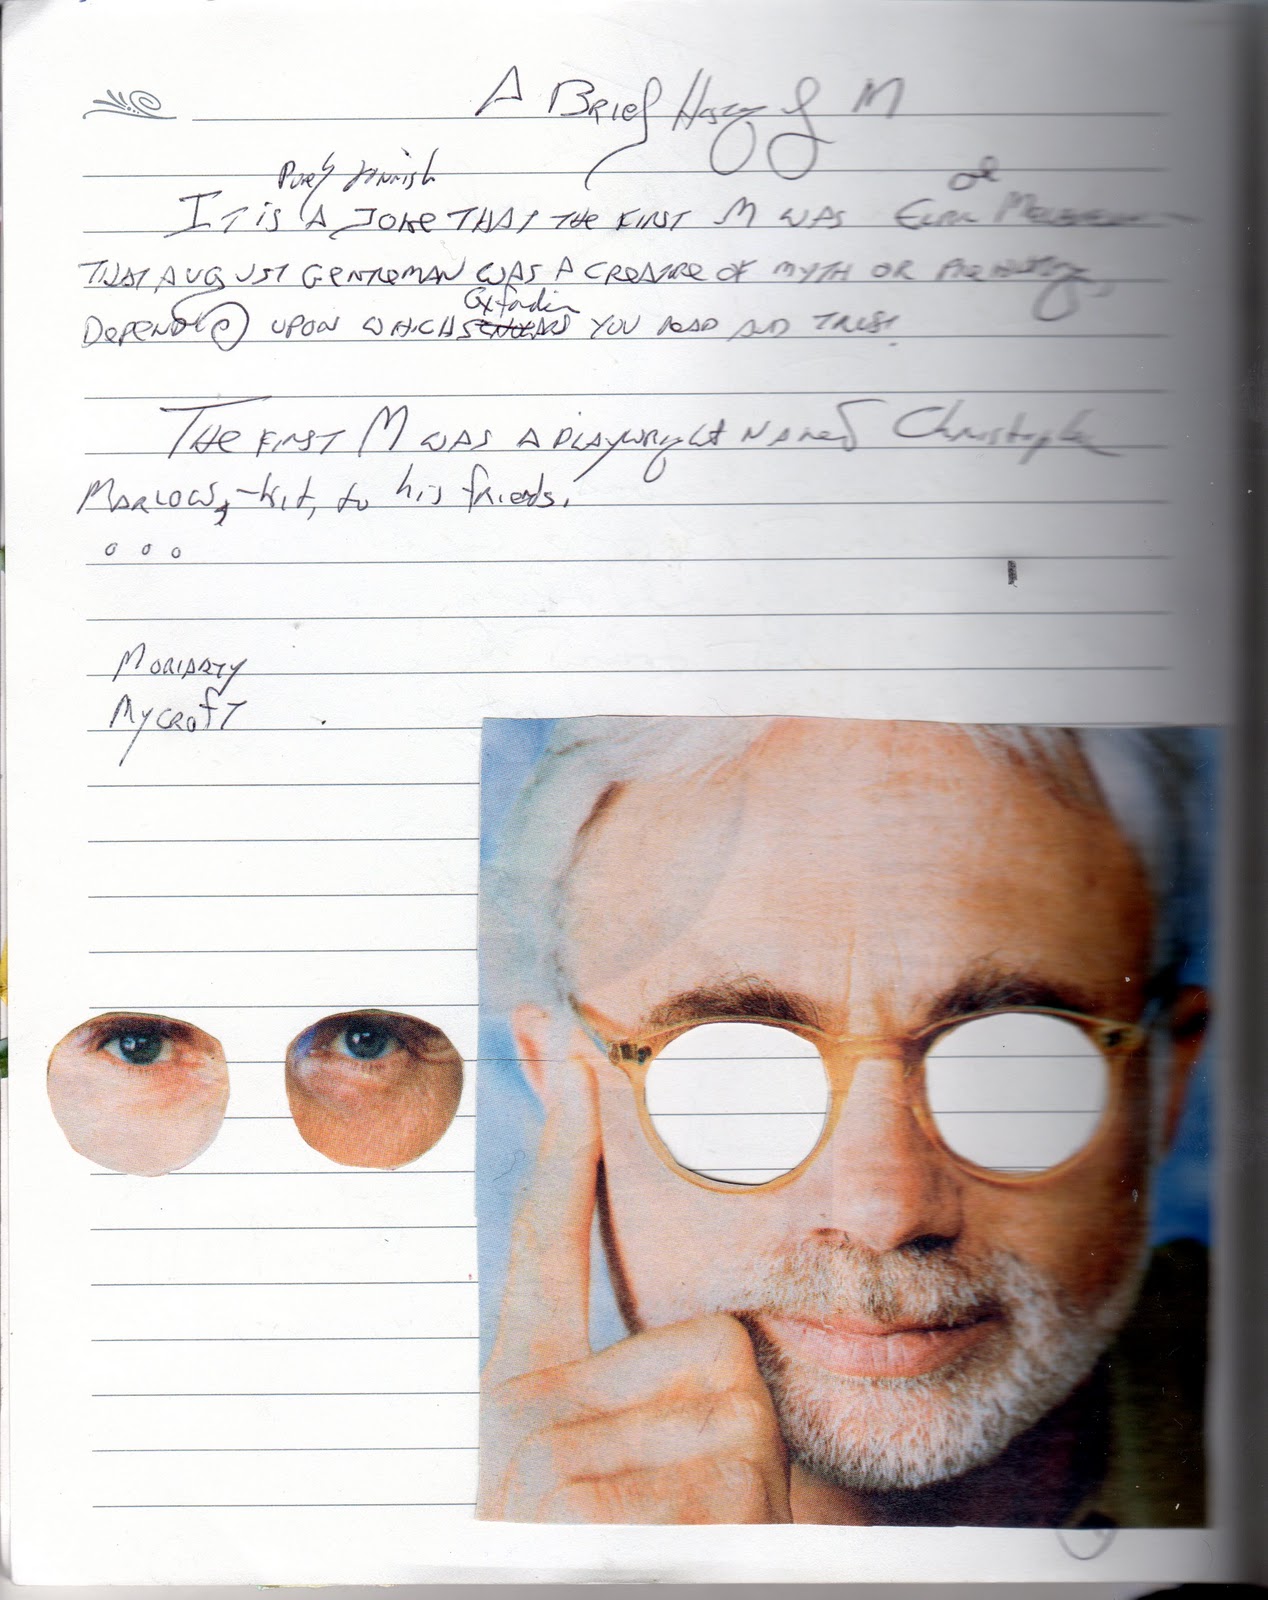 A Brief History of M
Purely Finnish
IT is A JOKE THAT THE FIRST M WAS
THAT AUGUST GENTLEMAN WAS A CREATURE OF MYTH OR PREHISTORY,
Oxfordian
DEPENDING UPON WHICH SCHOLARS YOU READ AND TRUST.
THE FIRST M WAS A PLAYWRIGHT NAMED Christopher
MARLOWE, -Kit, to his friends.
o o o
MORIARTY
MYCROFT